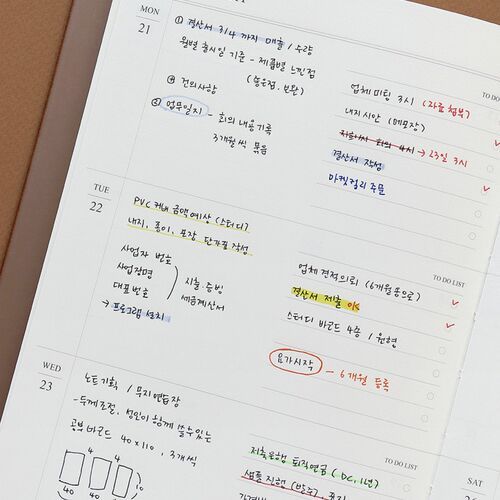 MON
21
① 결산서 3/4 까지 매출 / 수량
월별 출시일 기준 - 제품별 느낀점
(좋은점, 보완)
⊕ 건의사항
② 업무일지 - 회의 내용기록
3개월씩 묶음
TO DO
업체미팅 3시 (자료첨부)
내지시안 (메모장)
회의 4시 → 23일 3시
결산서 작성
마켓컬리 주문
TUE
22
PVC 커버 금액예상 (스터디)
내지, 종이, 포장 단가표 작성
사업자 번호
사업장명
대표번호
지출증빙
세금계산서
→ 프로그램 설치
TO DO LIST
업체 견적의뢰 (6개월용으로)
결산서 제출 OK
스터디 바코드 4종 / 원현
요가시작 - 6개월 등록
WED
23
노트기획 / 무지연습장
- 두께조절, 성인이 함께 쓸수있는
공부 바코드 40x110, 3개씩
4 4
40 40
TO DO LIST
저축은행 퇴직연금 (DC, 1년)
샘플 진행 (반수),
SAT
26